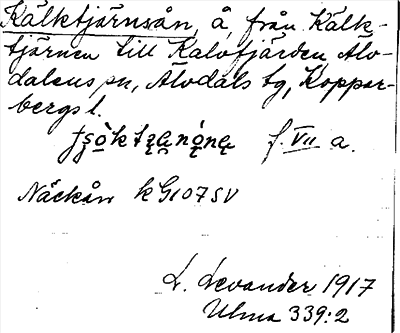 Kälktjärnsån, å, från Kälk-
tjärnen till Kalvfjärden, Älv-
dalens sn, Älvdals tg, Koppar-
bergs l.
f. VII a.
Näckån k G107SV
L. Levander 1917
Ulma 339:2